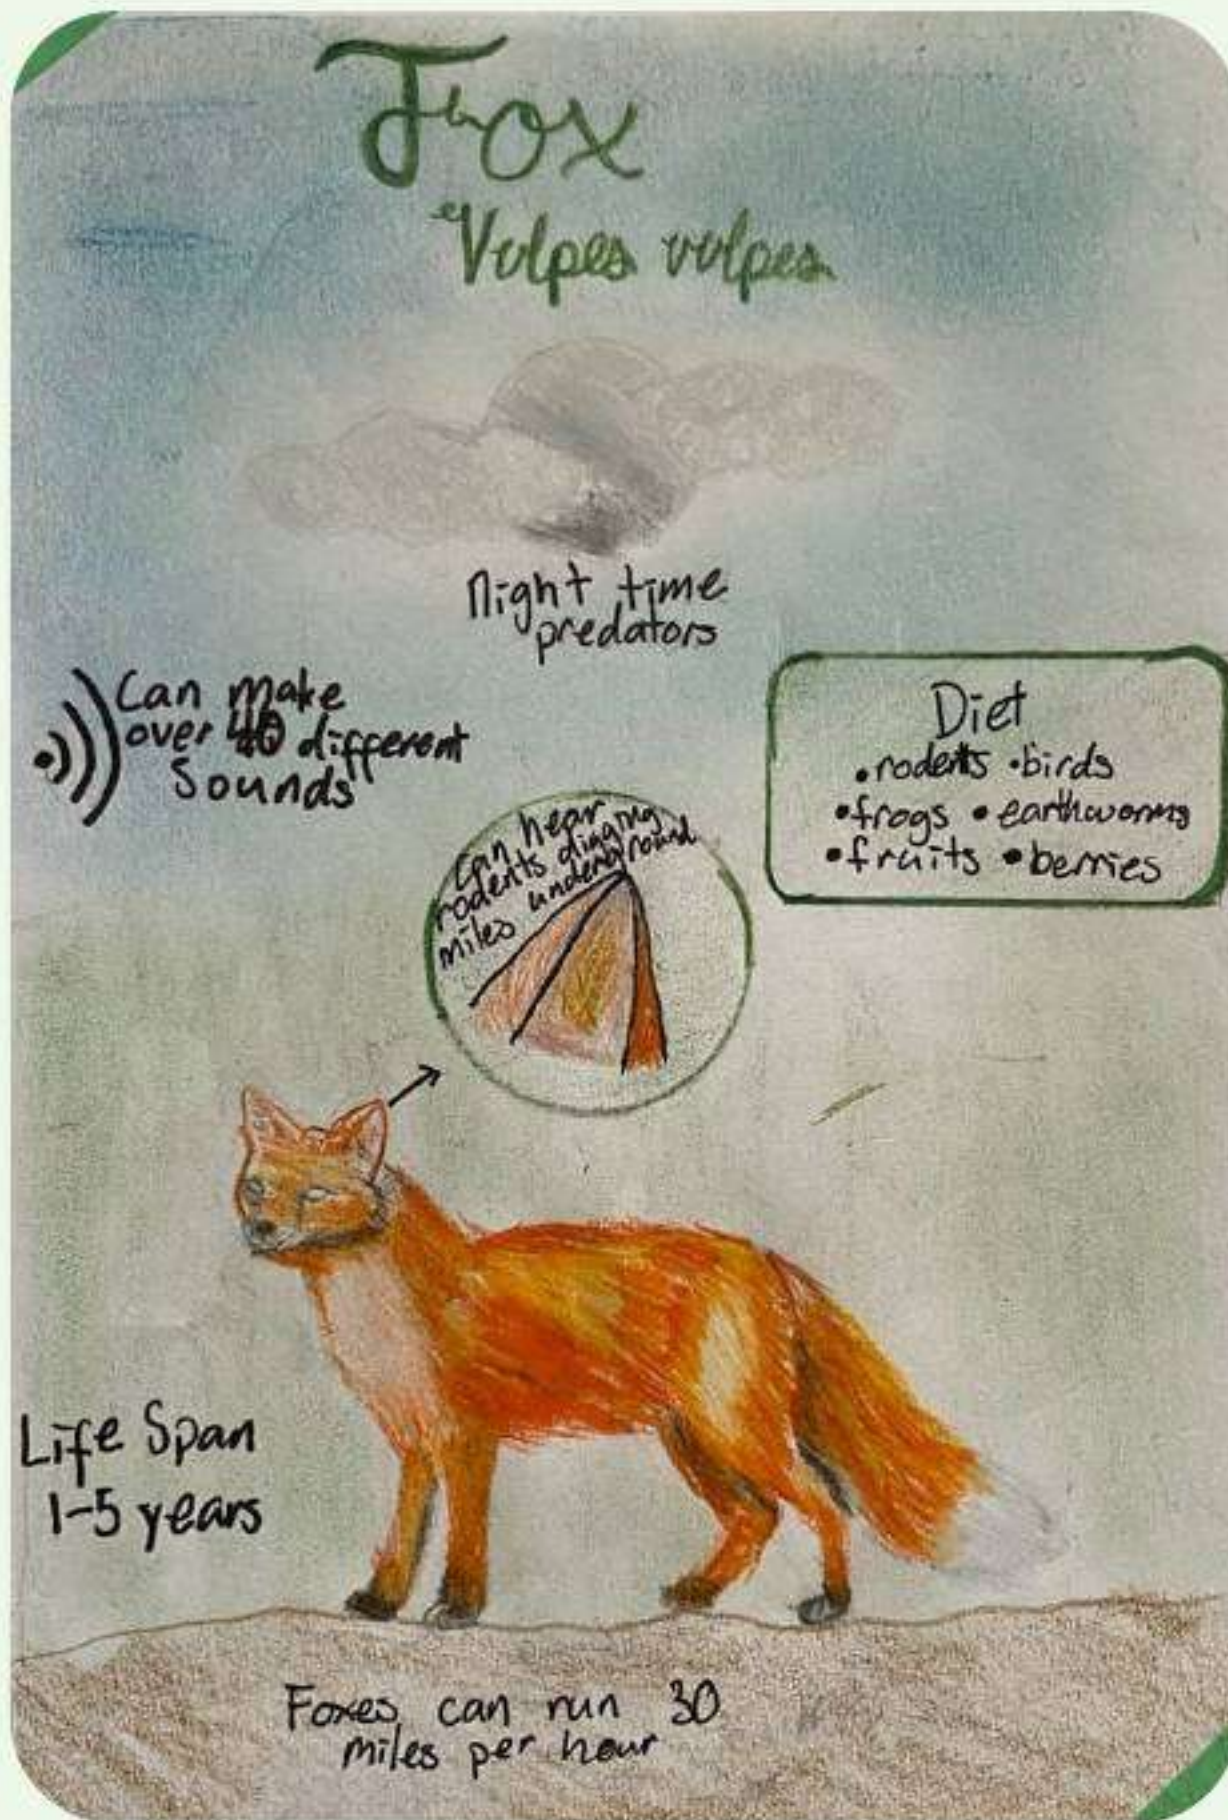 Fox
Vulpes vulpes
Night time
predators
Can make
over 40 different
Sounds
Diet
• rodents • birds
• frogs • earthworms
• fruits • berries
can hear
rodents digging
miles underground
Life Span
1-5 years
Foxes can run 30
miles per hour